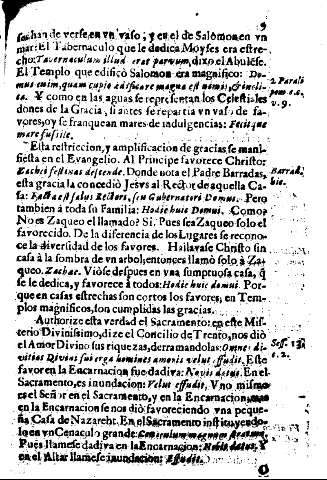 9
se han de verse, en vn vaso; y en el de Salomon en vn
mar: El Tabernaculo que le dedica Moyses era estre-
cho: Tavernaculum illud erat parvum, dixo el Abulēse.
El Templo que edificò Salomon era magnifico: Do-
mus enim, quam cupio ædificare magna est nimis, & incli-
2 Parali
ta. Y como en las aguas se representan los Celestiales
pom c. 2.
dones de la Gracia, si antes se repartia vn vaso de fa-
v. 9.
vores, oy se franquean mares de indulgencias: Fecitque
mare fusile.
Esta restriccion, y amplificacion de gracias se mani-
fiesta en el Evangelio. Al Principe favorece Christo:
Zachee festinas descende. Donde nota el Padre Barradas,
Barrad.
esta gracia la concediò Jesvs al Rector de aquella Ca-
hic.
sa: Facta est salus Rectori, seu Gubernatori Domus. Pero
tambien à toda su Familia: Hodie huic Domui. Como?
No es Zaqueo el llamado? Si. Pues sea Zaqueo solo el
favorecido. De la diferencia de los Lugares se recono-
ce la diversidad de los favores. Hallavase Christo sin
casa à la sombra de vn arbol, entonces llamò solo à Za-
queo. Zachæe. Viòse despues en vna sumptuosa casa, q̃
se le dedica, y favorece à todos: Hodie huic domui. Por-
que en casas estrechas son cortos los favores, en Tem-
plos magnificos, son cumplidas las gracias.
Authorize esta verdad el Sacramento: en este Mis-
terio Divinissimo, dize el Concilio de Trento, nos diò
Sess. 13.
el Amor Divino sus riquezas, derramandolas: Omnes di-
c. 2.
vitias Divini sui erga homines amoris velut effudit. Este
favor en la Encarnacion fue dadiva: Novis datus. En el
Sacramento, es inundacion: Velut effudit. Vno mismo
es el Señor en el Sacramento, y en la Encarnacion, mas
en la Encarnacion se nos diò favoreciendo vna peque-
ña Casa de Nazareht. En el Sacramento instituyendo-
lo en vn Cenaculo grande: Cœnaculum magnum stratum.
Pues llamese dadiva en la Encarnacion: Nobis datus. Y
en el Altar llamese inundacion: Effudit.